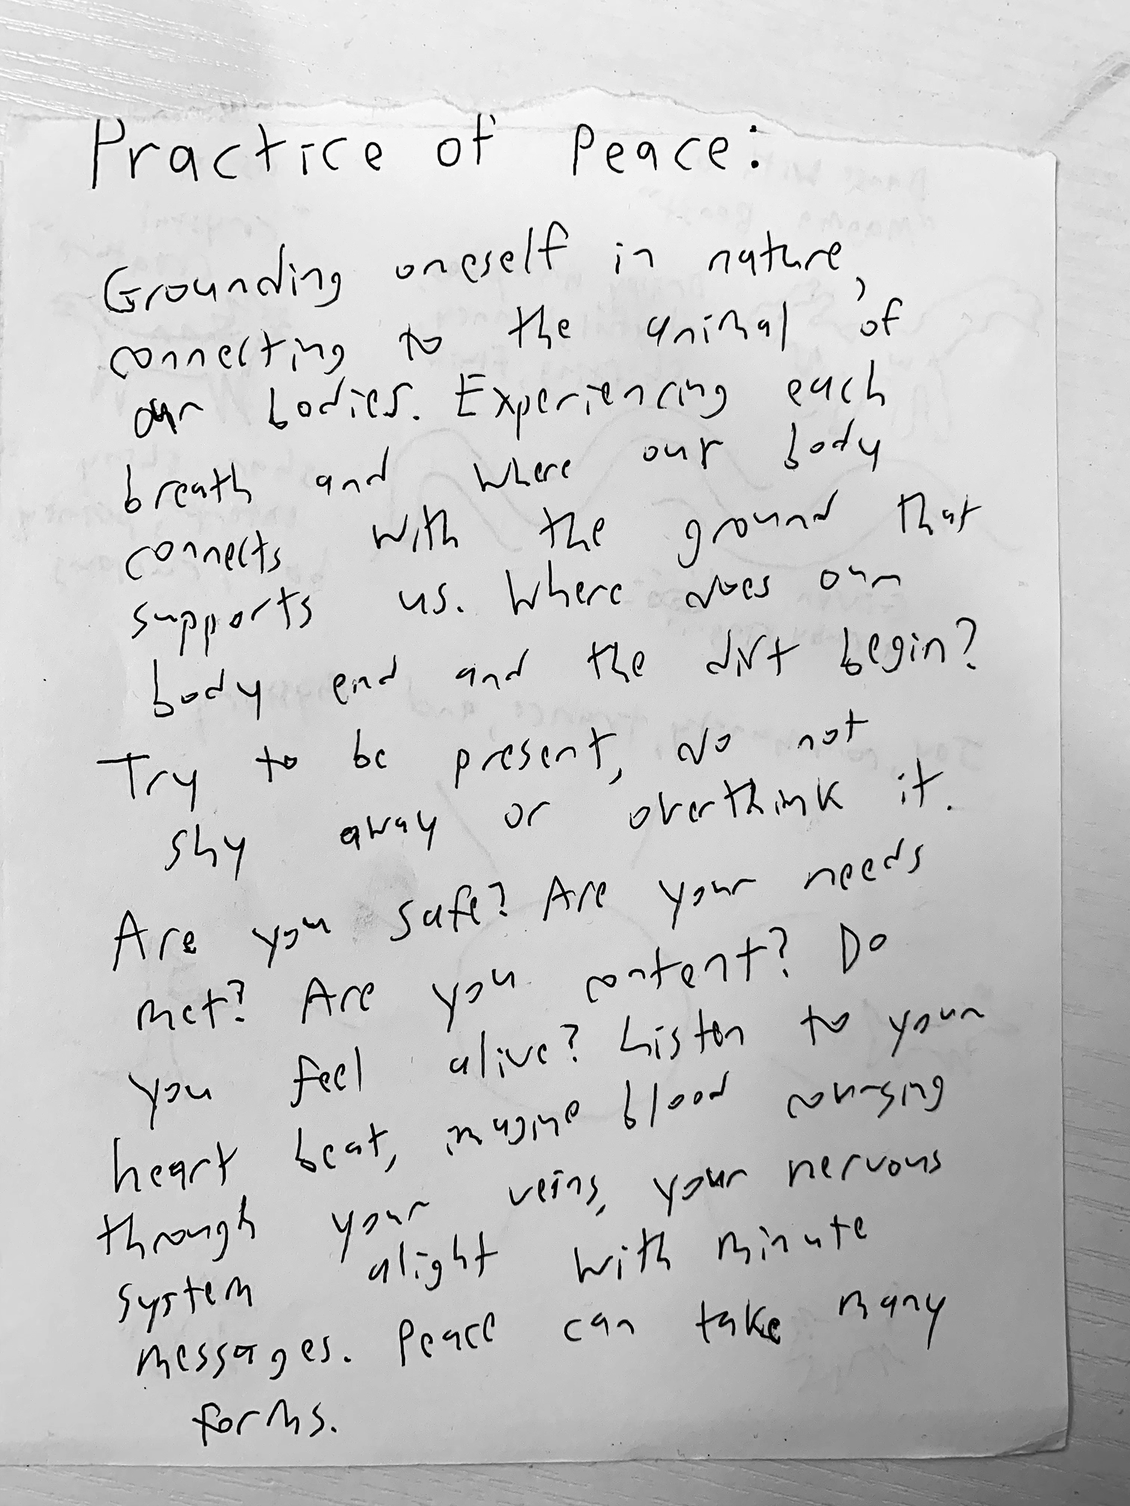 Practice of Peace:
Grounding oneself in nature,
connecting to the animal of
our bodies. Experiencing each
breath and where our body
connects with the ground that
supports us. Where does our
body end and the dirt begin?
Try to be present, do not
shy away or overthink it.
Are you safe? Are your needs
met? Are you content? Do
you feel alive? Listen to your
heart beat, imagine blood coursing
through your veins, your nervous
system alight with minute
messages. Peace can take many
forms.